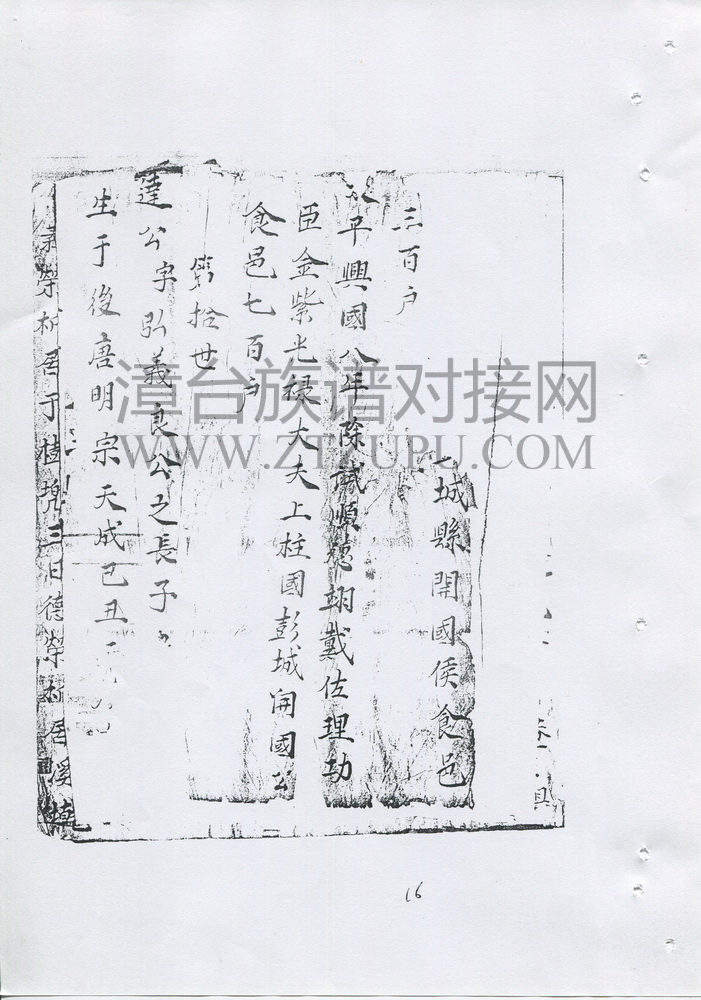 城縣開國侯食邑
三百户
平興國八年除誠順德翊戴佐理功
臣金紫光禄大夫上柱國彭城開國公
食邑七百户
第拾世
達公字弘義良公之長子
生于後唐明宗天成己丑
榮析居于桂 三曰德榮析居溪
漳台族谱对接网
WWW.ZTZUPU.COM
16